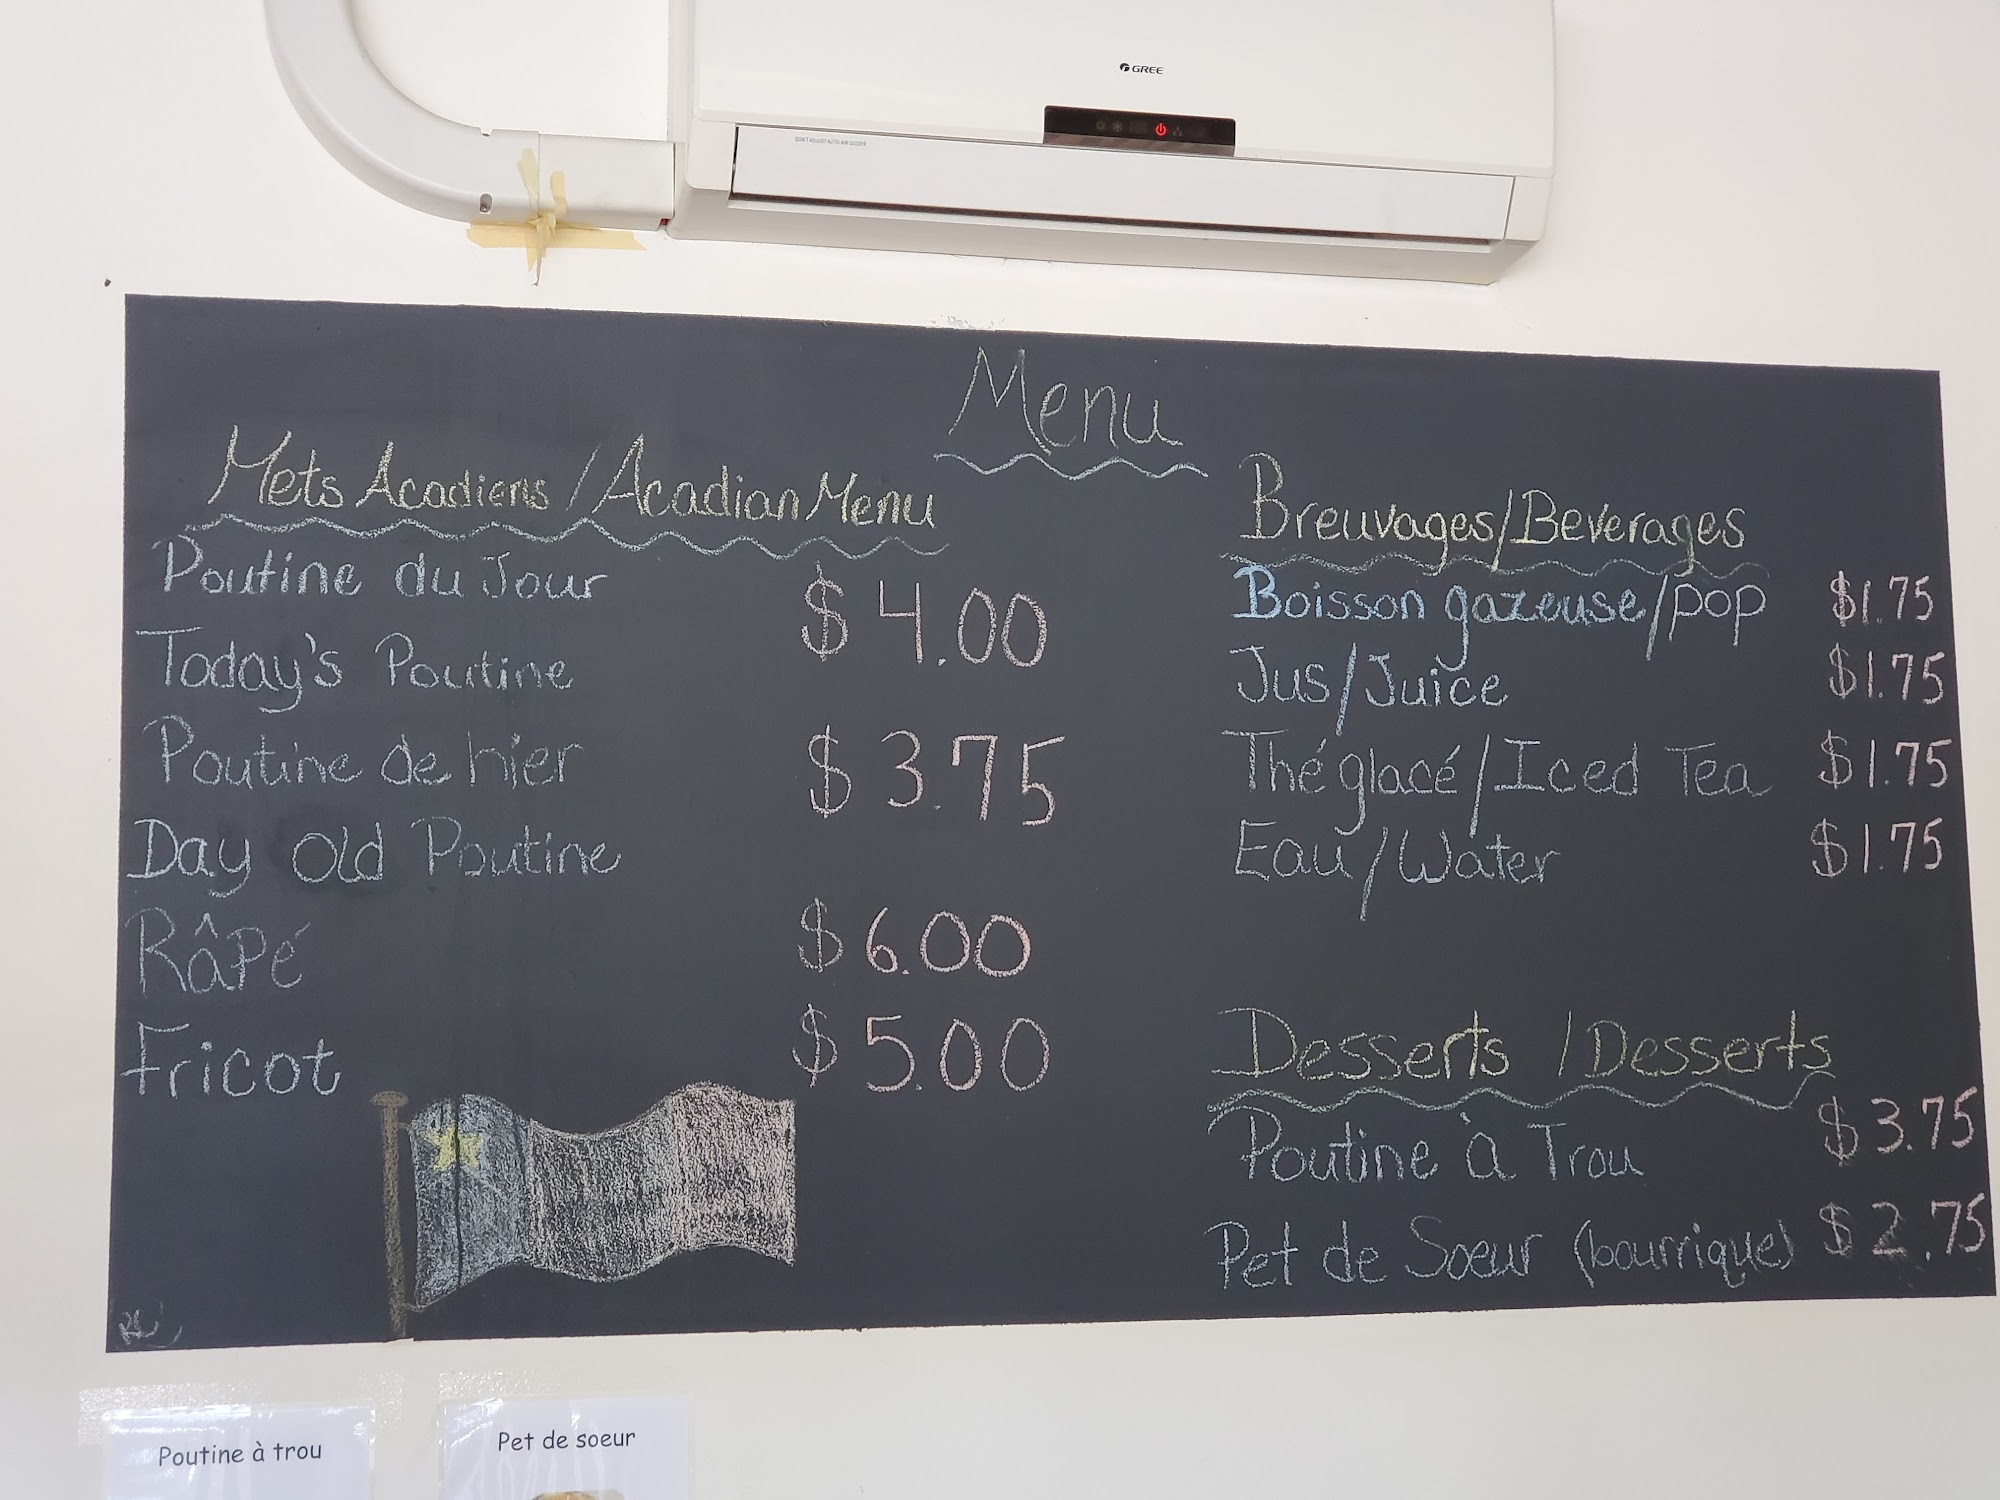 GREE
DON'T ADJUST AUTO-AIR GUIDER
Menu
Mets Acadiens / Acadian Menu
Poutine du Jour
Today's Poutine $4.00
Poutine de hier
Day Old Poutine $3.75
Râpé $6.00
Fricot $5.00
Breuvages/Beverages
Boisson gazeuse/pop $1.75
Jus/Juice $1.75
Thé glacé/Iced Tea $1.75
Eau/Water $1.75
Desserts / Desserts
Poutine à Trou $3.75
Pet de Soeur (bourrique) $2.75
Poutine à trou
Pet de soeur